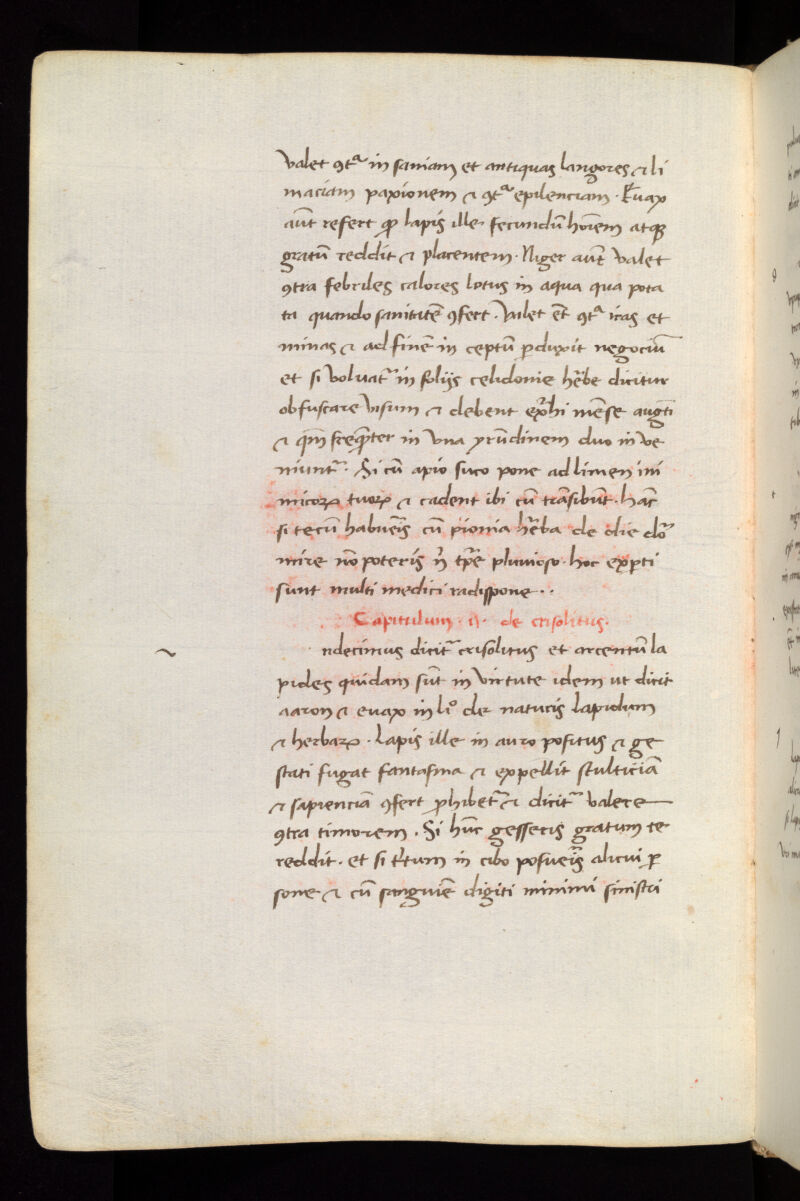 valet ꝯtᵃ insaniam et antiquas langores ⁊ li
maciam paxionem ⁊ ꝯtᵃ epilenciam. Evax
aūt refert ꝙ lapis ille fecundū hoīem atqꝫ
gratū reddit ⁊ placentem. Niger aūt valet
ꝯtra febriles calores lotus in aqua qua pota
ta quando sanitatē ꝯfert. Valet ēt ꝯtᵃ iras et
minas ⁊ ad finē in ceptū ꝑduxit negociū
et si voluat᷑ in folijs celidonie hērbe dicitur
obfuscare visum ⁊ debent ext̄hi mēse augti
⁊ in una yrūdinem duo in ve
niunt᷑. Si cū apio suco pone ad limen ini
micoꝝ tuoꝝ ⁊ cadent ibi cū transibūt. hāc
si tecū habueris cū pionia hērba de die doꝛ
mire nō poteris nˢ tꝑe pluuioso. hoc exꝑti
sunt multi medici radispone..
Capitulum. ij. de crisolitus.
ndecimus dicit᷑ crisolitus et arcentū la
pides quidam sūt in virtute idem ut dicit
aaron ⁊ evax in liº de naturis lapidum
⁊ herbaꝝ. Lapis ille in auro positus ⁊ ge
stati fugat fantasma ⁊ expellit stulticiā
⁊ sapienciā ꝯfert ꝓhibet᷑ ⁊ dicit᷑ valere
ꝯtra timorem. Si hūc gesseris gratum te
reddit. et si t̄tum in cibo posueris alicui ꝑ
sone ⁊ cū sanguiē digiti minimi sinistri